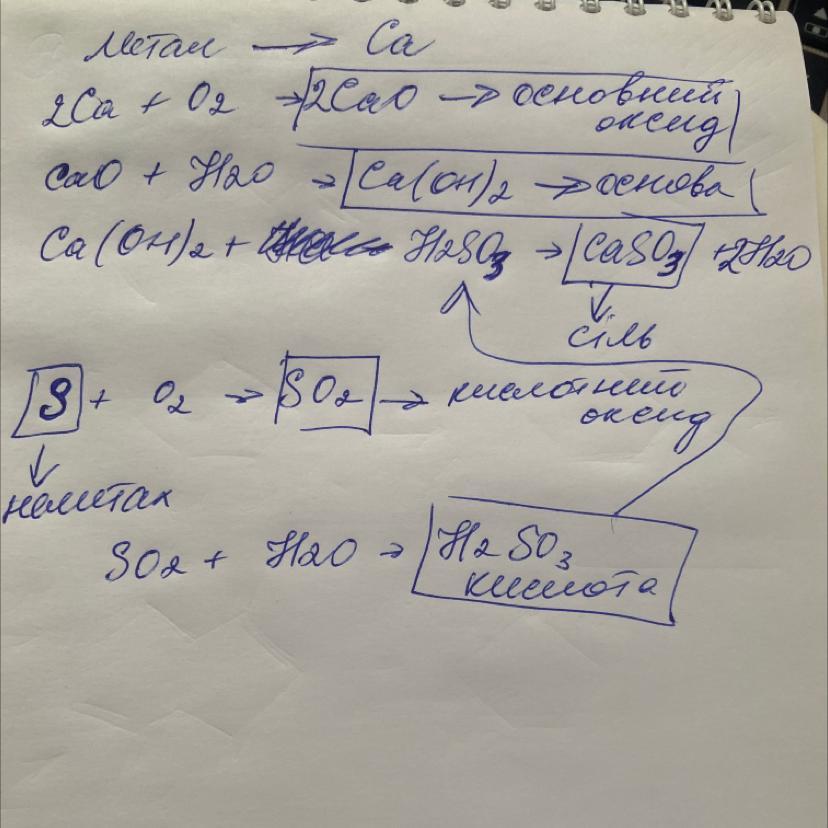 метал → Ca
2Ca + O2 → 2CaO → основний
оксид
CaO + H2O → Ca(OH)2 → основа
Ca(OH)2 + H2SO3 → CaSO3 + 2H2O
сіль
S + O2 → SO2 → кислотний
оксид
неметал
SO2 + H2O → H2SO3
кислота